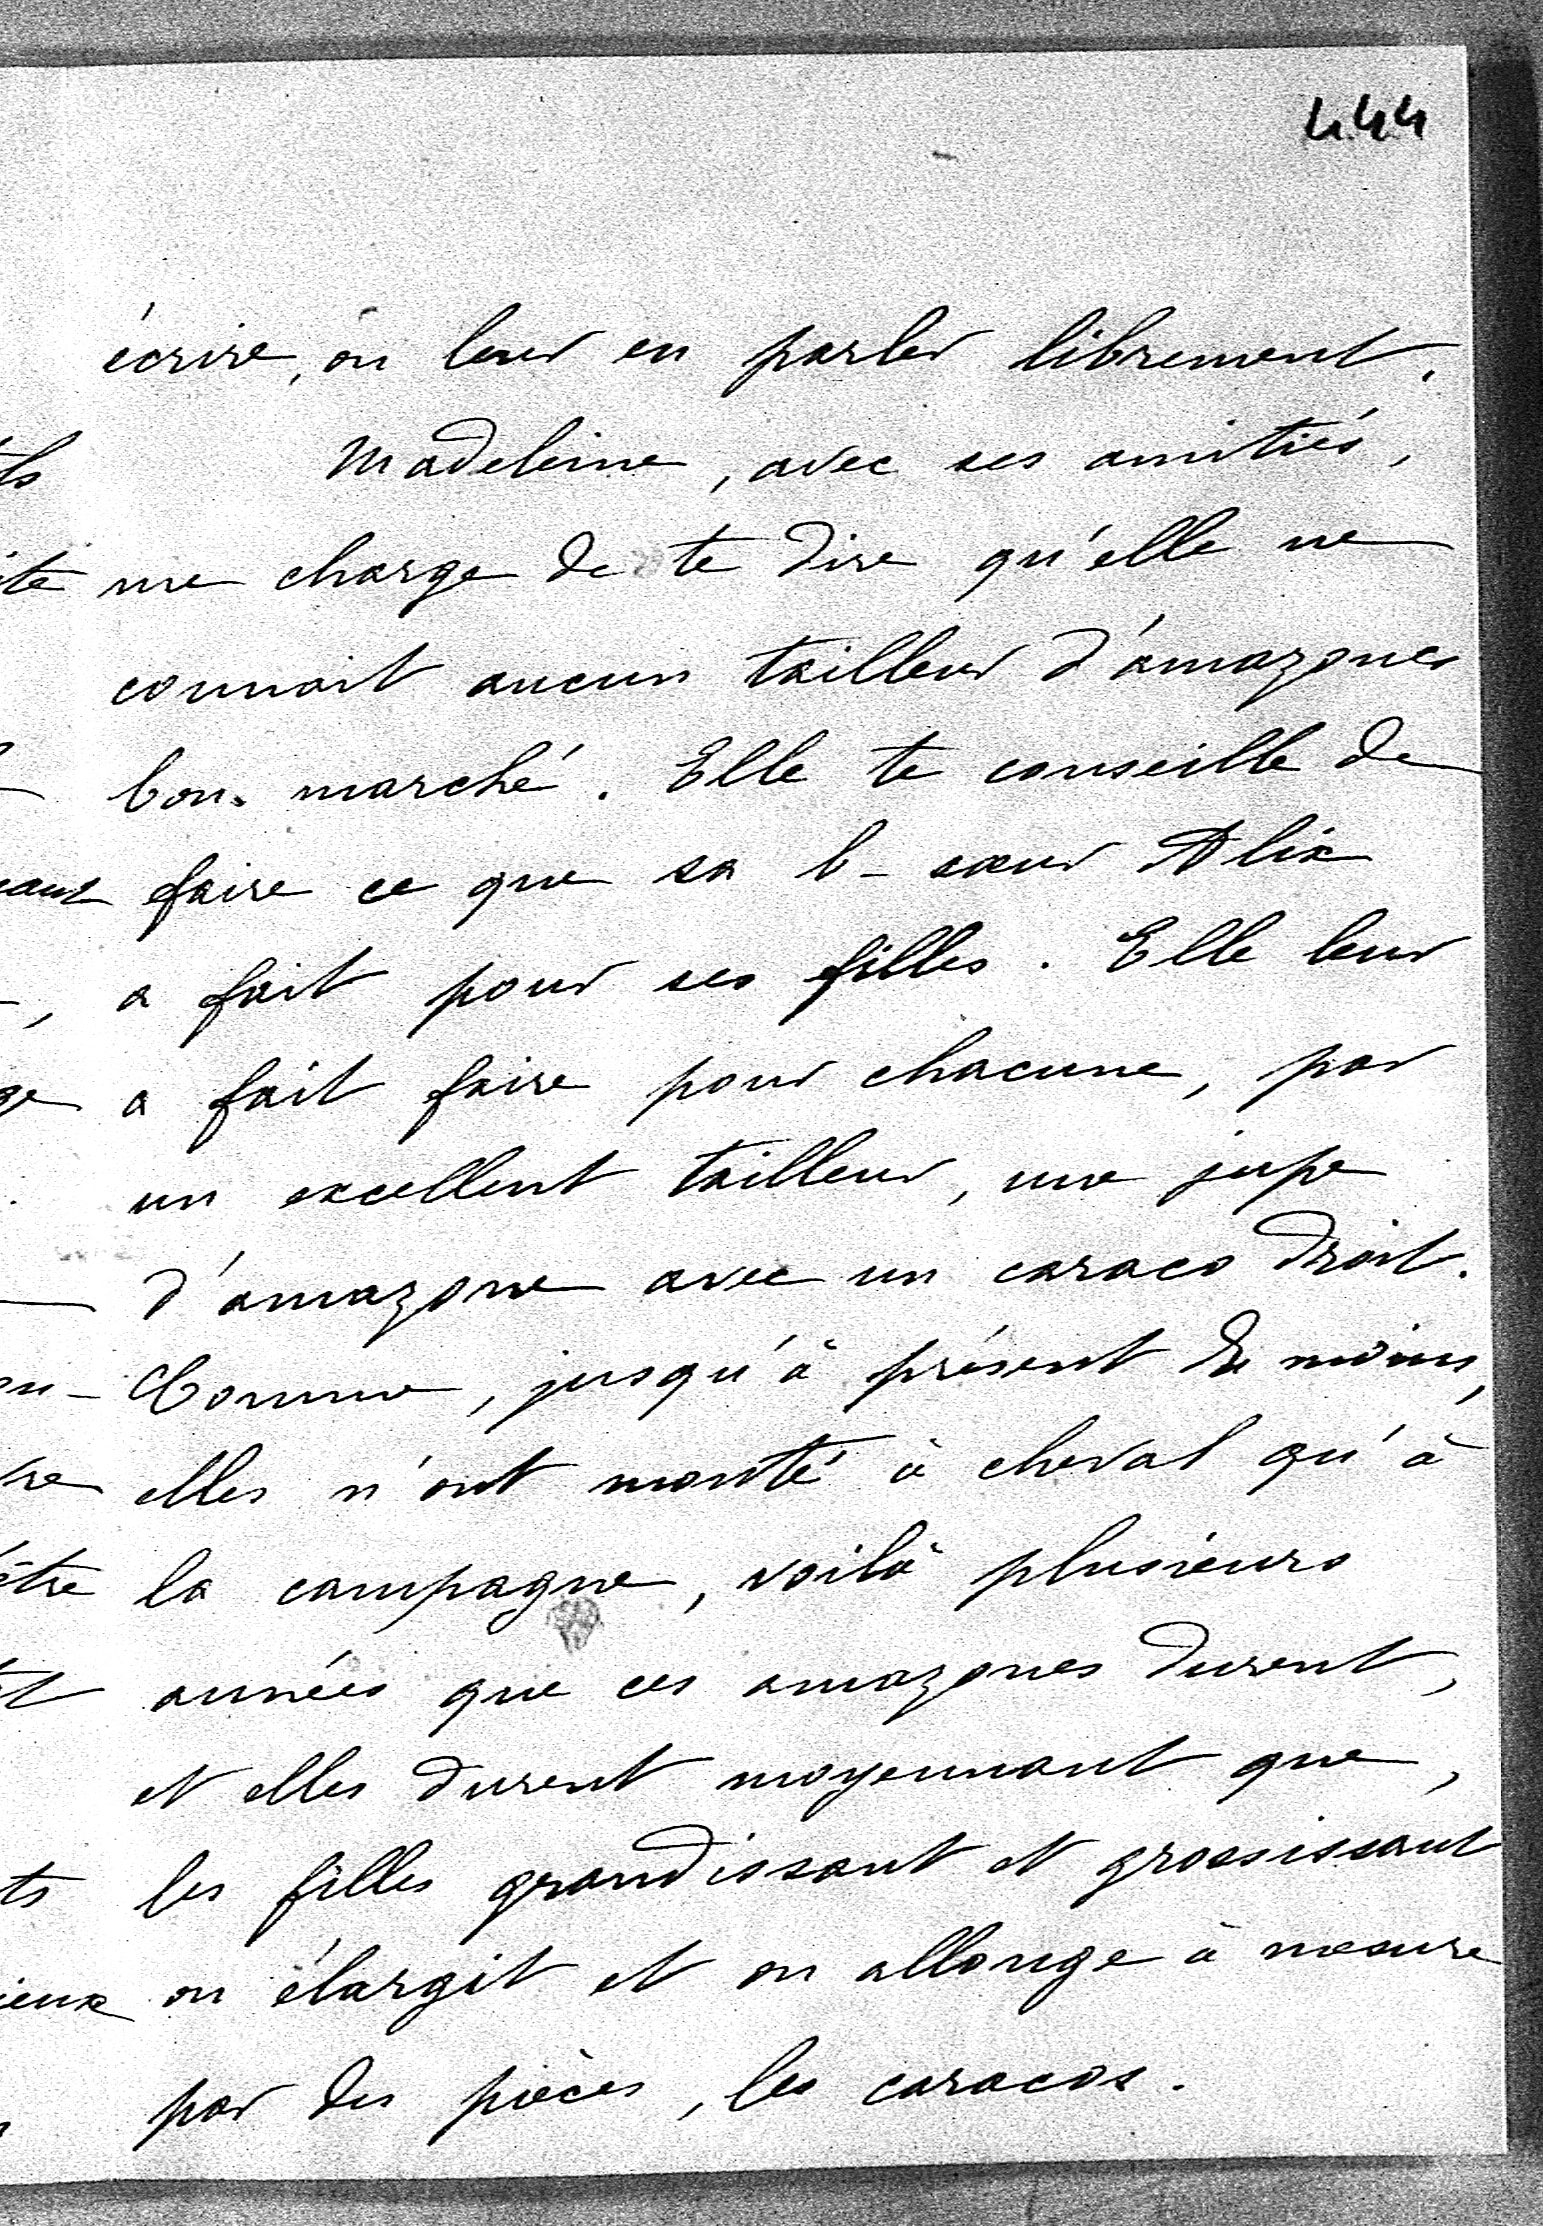 444
écrire, ou leur en parler librement.
Madeleine, avec ses amitiés,
me charge de te dire qu'elle ne
connait aucun tailleur d'amazones
bon marché. Elle te conseille de
faire ce que sa b-sœur Alix
a fait pour ses filles. Elle leur
a fait faire pour chacune, par
un excellent tailleur, une jupe
d'amazone avec un caraco droit.
Comme, jusqu'à présent du moins,
elles n'ont monté à cheval qu'à
la campagne, voilà plusieurs
années que ces amazones durent,
et elles durent moyennant que,
les filles grandissant et grossissant
on élargit et on allonge à mesure
par des pièces, les caracos.